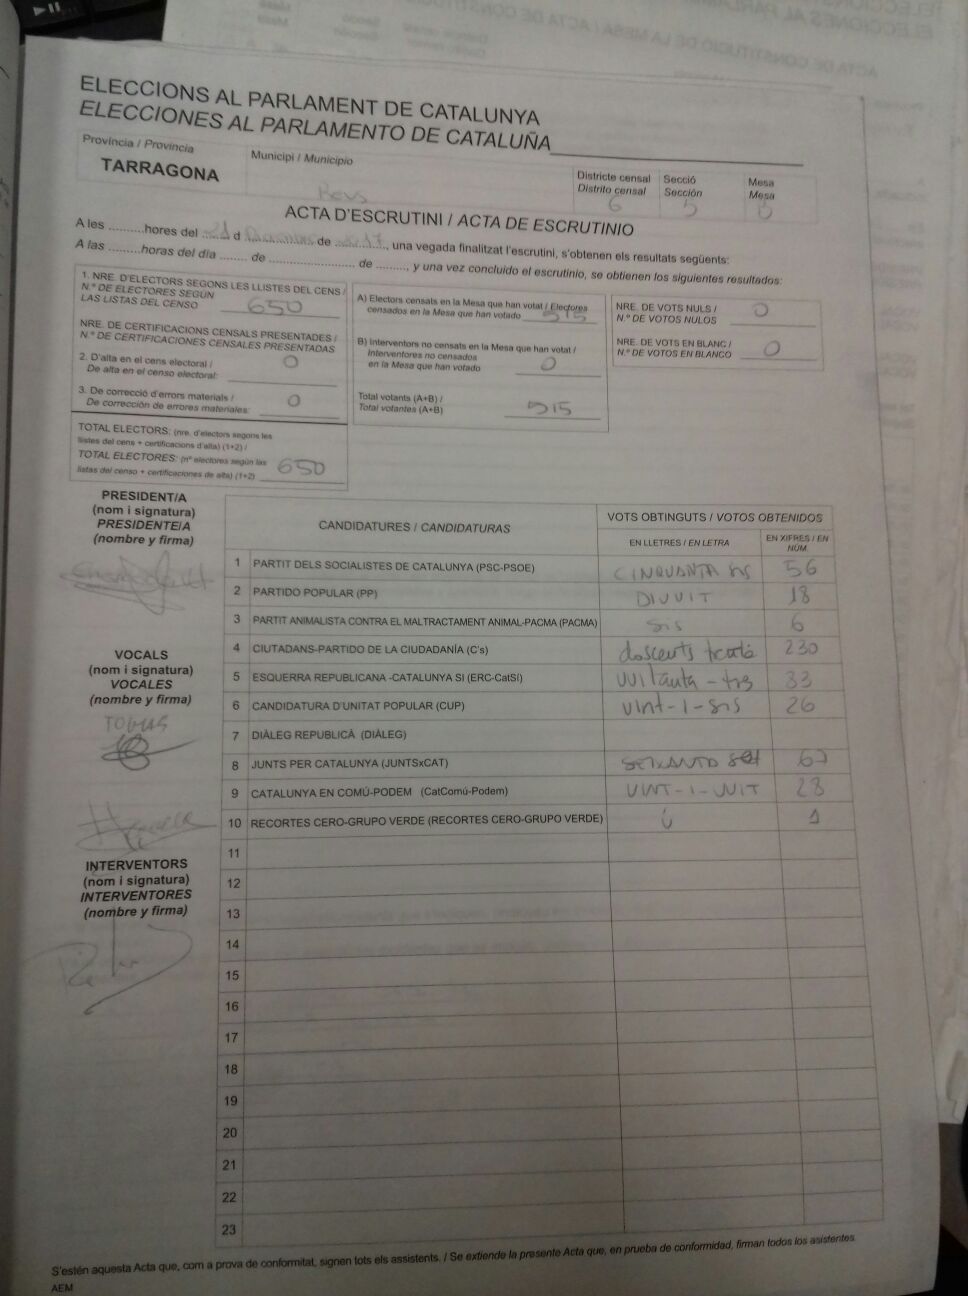 ELECCIONS AL PARLAMENT DE CATALUNYA
ELECCIONES AL PARLAMENTO DE CATALUÑA
Província / Provincia
TARRAGONA
Municipi / Municipio
Reus
Districte censal
Distrito censal
6
Secció
Sección
5
Mesa
Mesa
ACTA D'ESCRUTINI / ACTA DE ESCRUTINIO
A les .........hores del 21 d ................ de 2017, una vegada finalitzat l'escrutini, s'obtenen els resultats següents:
A las .........horas del día ........ de ......................... de ........., y una vez concluido el escrutinio, se obtienen los siguientes resultados:
1. NRE. D'ELECTORS SEGONS LES LLISTES DEL CENS /
N.º DE ELECTORES SEGÚN
LAS LISTAS DEL CENSO 650
NRE. DE CERTIFICACIONS CENSALS PRESENTADES /
N.º DE CERTIFICACIONES CENSALES PRESENTADAS
2. D'alta en el cens electoral /
De alta en el censo electoral: 0
3. De correcció d'errors materials /
De corrección de errores materiales: 0
TOTAL ELECTORS: (nre. d'electors segons les
llistes del cens + certificacions d'alta) (1+2) /
TOTAL ELECTORES: (nº electores según las
listas del censo + certificaciones de alta) (1+2) 650
A) Electors censats en la Mesa que han votat / Electores
censados en la Mesa que han votado 515
B) Interventors no censats en la Mesa que han votat /
Interventores no censados
en la Mesa que han votado 0
Total votants (A+B) /
Total votantes (A+B) 515
NRE. DE VOTS NULS /
N.º DE VOTOS NULOS 0
NRE. DE VOTS EN BLANC /
N.º DE VOTOS EN BLANCO 0
PRESIDENT/A
(nom i signatura)
PRESIDENTE/A
(nombre y firma)
VOCALS
(nom i signatura)
VOCALES
(nombre y firma)
TOBIAS
INTERVENTORS
(nom i signatura)
INTERVENTORES
(nombre y firma)
CANDIDATURES / CANDIDATURAS
VOTS OBTINGUTS / VOTOS OBTENIDOS
EN LLETRES / EN LETRA
EN XIFRES / EN
NÚM.
1 PARTIT DELS SOCIALISTES DE CATALUNYA (PSC-PSOE) CINQUANTA SIS 56
2 PARTIDO POPULAR (PP) DIVUIT 18
3 PARTIT ANIMALISTA CONTRA EL MALTRACTAMENT ANIMAL-PACMA (PACMA) SIS 6
4 CIUTADANS-PARTIDO DE LA CIUDADANÍA (C's) doscents trenta 230
5 ESQUERRA REPUBLICANA -CATALUNYA SÍ (ERC-CatSí) vuitanta-tres 83
6 CANDIDATURA D'UNITAT POPULAR (CUP) vint-i-sis 26
7 DIÀLEG REPUBLICÀ (DIÀLEG)
8 JUNTS PER CATALUNYA (JUNTSxCAT) SEIXANTA set 67
9 CATALUNYA EN COMÚ-PODEM (CatComú-Podem) VINT-I-VUIT 28
10 RECORTES CERO-GRUPO VERDE (RECORTES CERO-GRUPO VERDE) 1
11
12
13
14
15
16
17
18
19
20
21
22
23
S'estén aquesta Acta que, com a prova de conformitat, signen tots els assistents. / Se extiende la presente Acta que, en prueba de conformidad, firman todos los asistentes.
AEM